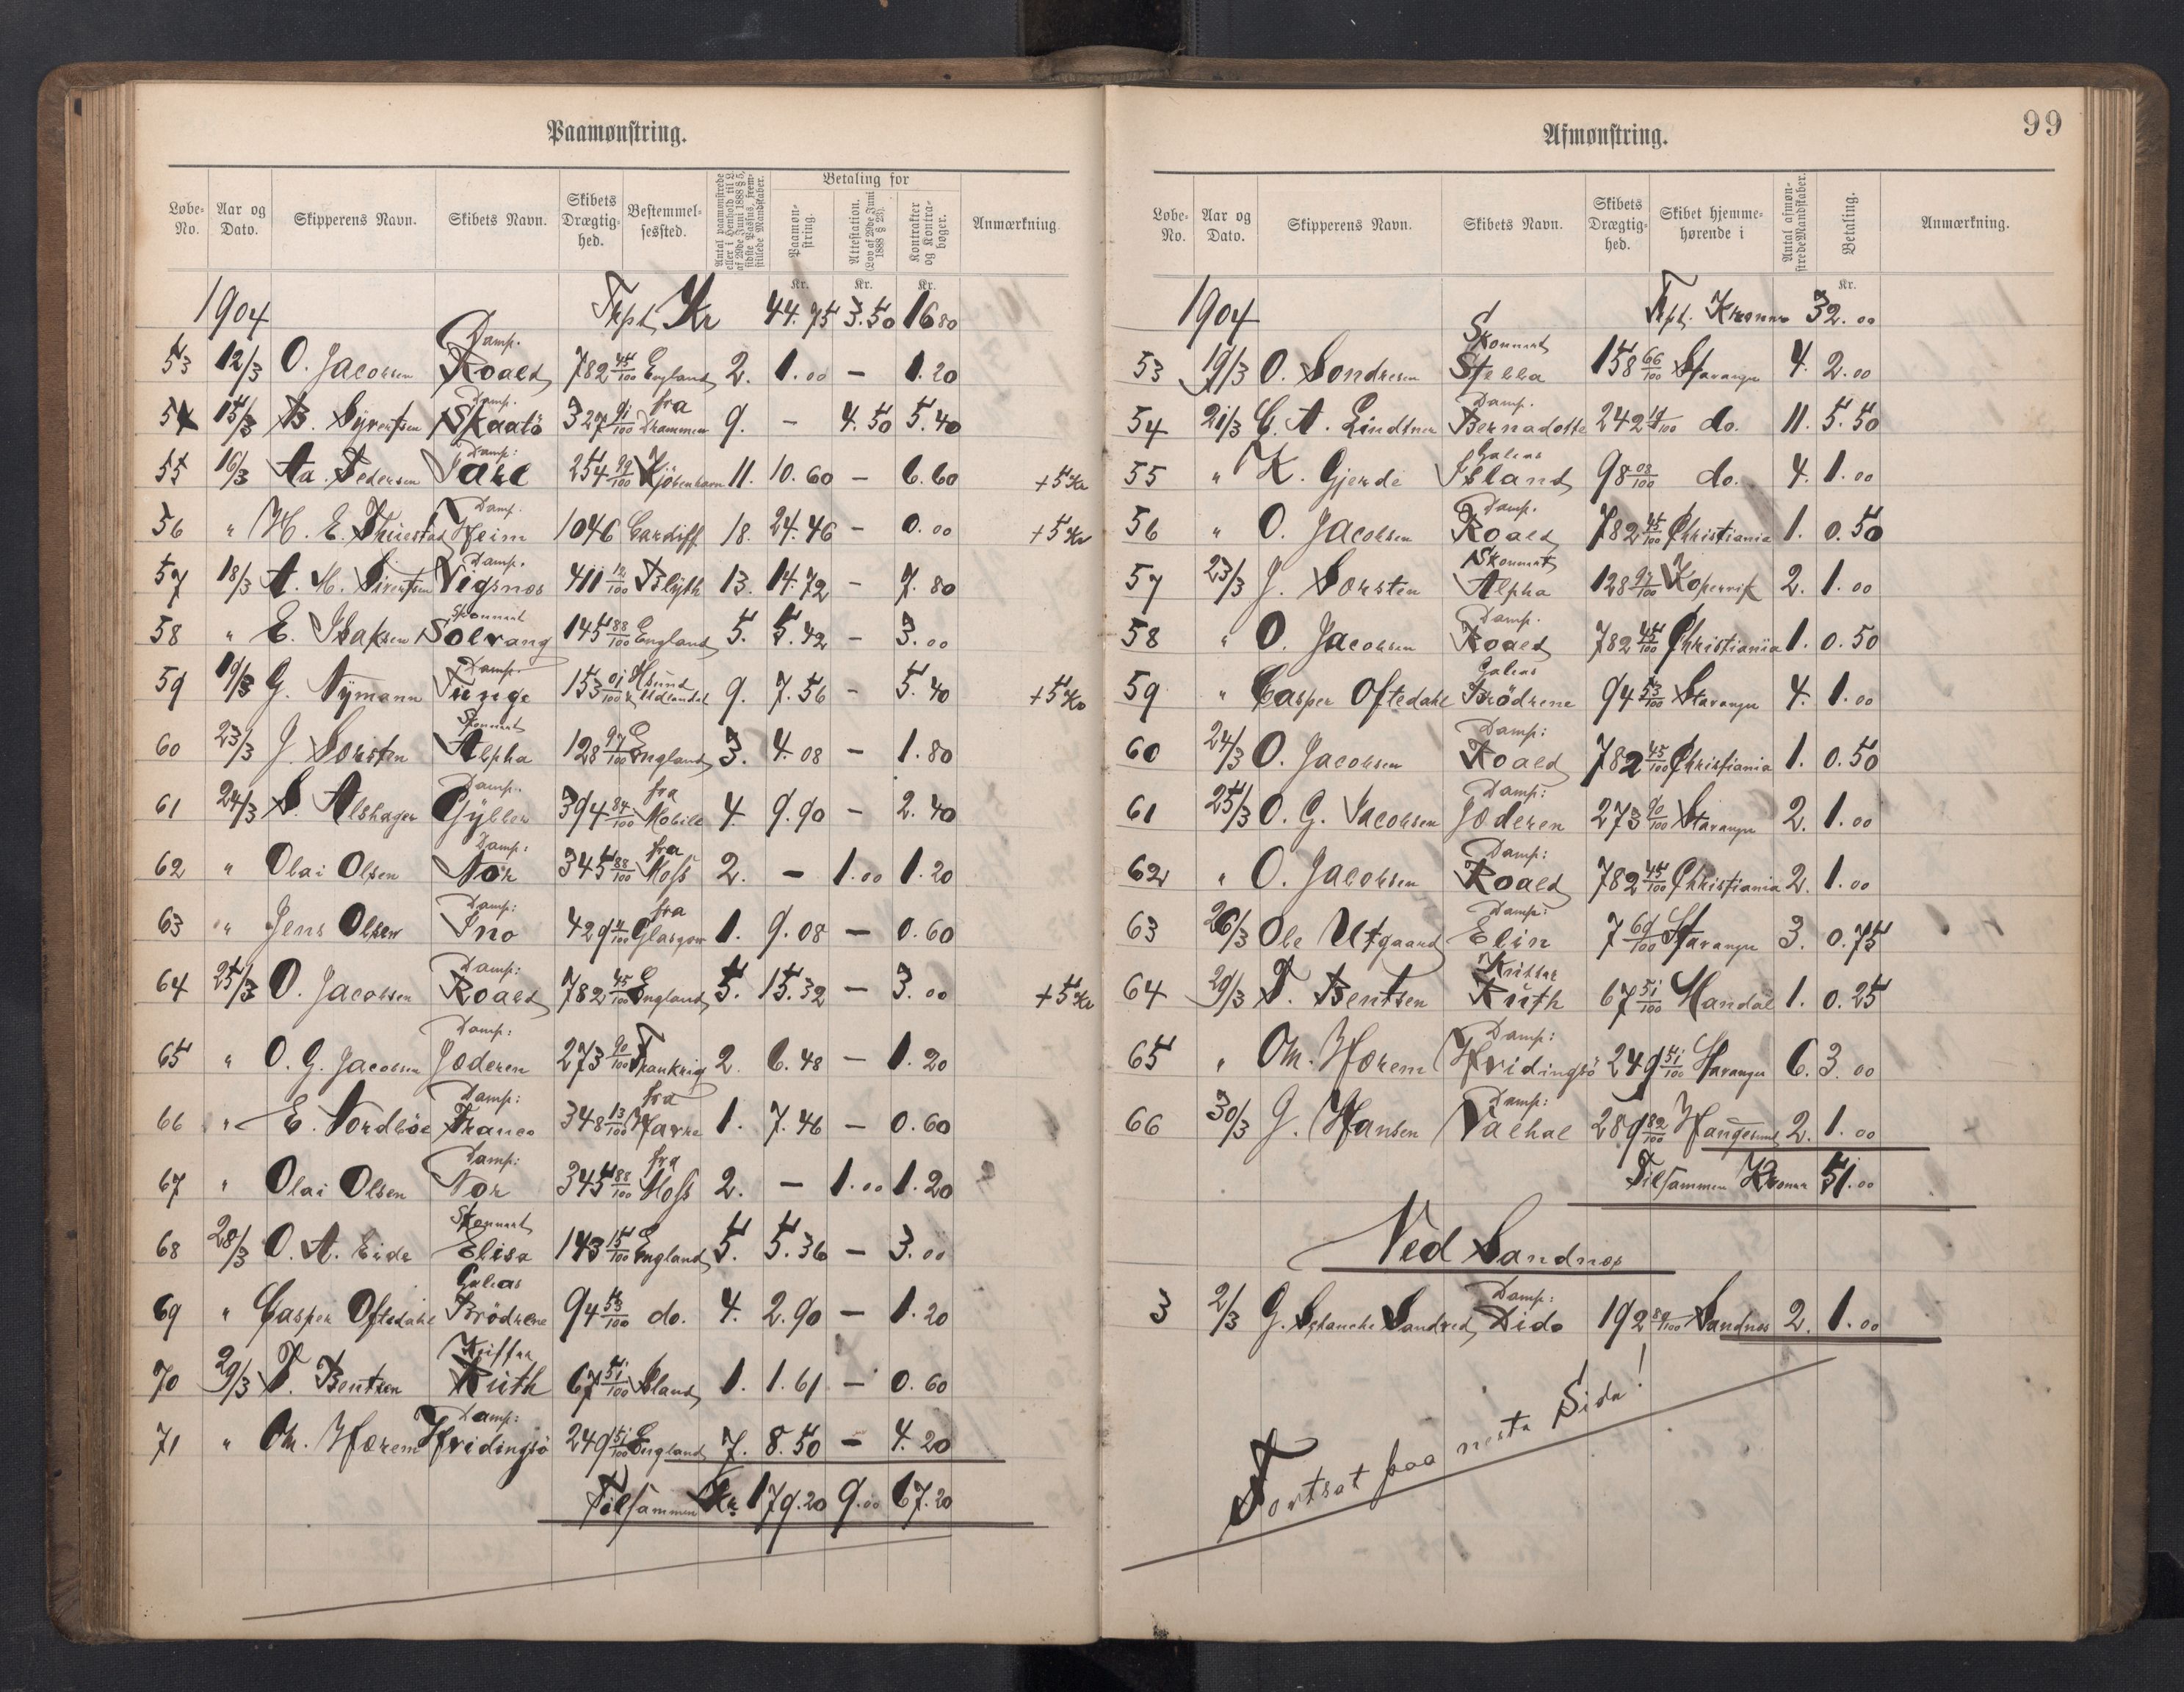 Paamønstring.
Løbe-No. Aar og Dato. Skipperens Navn. Skibets Navn. Skibets Drægtighed. Bestemmelsessted. Antal paamønstrede eller i Henhold til L. af 29de Juni 1888 § 5, sidste Passus, fremstillede Mandskaber. Betaling for Paamønstring. Attestation. (Lov af 29de Juni 1888 § 23). Kontrakter og Kontrabøger. Anmærkning.
Kr. Kr. Kr.
1904 Trpt. Kr 44.75 3.50 16.80
53 12/3 O. Jacobsen Damp. Roald 782 45/100 England 2. 1.00 — 1.20
54 15/3 B. Syvertsen Damp. Skaatö 327 91/100 fra Drammen 9. — 4.50 5.40
55 16/3 Aa. Pedersen Damp: Jarl 254 99/100 Kjöbenhavn 11. 10.60 — 6.60 +5 Kr
56 " H. E. Thuestad Damp. Heim 1046 Cardiff 18. 24.46 — 0.00 +5 Kr
57 18/3 A. M. Sivertsen Damp. Vigsnes 411 12/100 Blyth 13. 14.72 — 7.80
58 " E. Isaksen Skonnert Solvang 145 88/100 England 5. 5.42 — 3.00
59 19/3 G. Nymann Damp. Tunge 153 01/100 H.sund & Udlandet 9. 7.56 — 5.40 +5 Kr
60 23/3 J. Sorsten Skonnert Alpha 128 97/100 England 3. 4.08 — 1.80
61 24/3 S. Alshager Damp. Gyller 394 84/100 fra Mobile 4. 9.90 — 2.40
62 " Olai Olsen Damp: Nor 345 88/100 fra Moss 2. — 1.00 1.20
63 " Jens Olsen Damp: Ino 429 4/100 fra Glasgow 1. 9.08 — 0.60
64 25/3 O. Jacobsen Damp: Roald 782 45/100 England 5. 15.32 — 3.00 +5 Kr
65 " O. G. Jacobsen Damp: Jæderen 273 90/100 Frankrig 2. 6.48 — 1.20
66 " E. Nordböe Damp: Franco 348 13/100 fra Havre 1. 7.46 — 0.60
67 " Olai Olsen Damp: Nor 345 88/100 fra Moss 2. — 1.00 1.20
68 28/3 O. A. Eide Skonnert Elisa 143 15/100 England 5. 5.36 — 3.00
69 " Casper Oftedahl Galeas Brödrene 94 53/100 do. 4. 2.90 — 1.20
70 29/3 T. Bentsen Kutter Ruth 67 51/100 Island 1. 1.61 — 0.60
71 " Om. Hærem Damp: Hvidingsö 249 51/100 England 7. 8.50 — 4.20
Tilsammen Kr 179.20 9.00 67.20
99
Afmønstring.
Løbe-No. Aar og Dato. Skipperens Navn. Skibets Navn. Skibets Drægtighed. Skibet hjemmehørende i Antal afmønstrede Mandskaber. Betaling. Anmærkning.
Kr.
1904 Trpt. Kroner 32.00
53 19/3 O. Sondresen Skonnert Stella 158 66/100 Stavanger 4. 2.00
54 21/3 C. A. Lindtner Damp. Bernadotte 242 19/100 do. 11. 5.50
55 " K. Gjerde Galeas Island 98 08/100 do. 4. 1.00
56 " O. Jacobsen Damp. Roald 782 45/100 Christiania 1. 0.50
57 23/3 J. Sorsten Skonnert Alpha 128 97/100 Kopervik 2. 1.00
58 " O. Jacobsen Damp. Roald 782 45/100 Christiania 1. 0.50
59 " Casper Oftedahl Galeas Brödrene 94 53/100 Stavanger 4. 1.00
60 24/3 O. Jacobsen Damp: Roald 782 45/100 Christiania 1. 0.50
61 25/3 O. G. Jacobsen Damp: Jæderen 273 90/100 Stavanger 2. 1.00
62 " O. Jacobsen Damp: Roald 782 45/100 Christiania 2. 1.00
63 26/3 Ole Utgaard Damp: Elin 7 69/100 Stavanger 3. 0.75
64 29/3 T. Bentsen Kutter Ruth 67 51/100 Mandal 1. 0.25
65 " Om. Hærem Damp: Hvidingsö 249 51/100 Stavanger 6. 3.00
66 30/3 G. Hansen Damp: Valhal 289 82/100 Haugesund 2. 1.00
Tilsammen Kroner 51.00
Ved Sandnæs
3 2/3 G. Schanche Sandved Damp: Dido 192 89/100 Sandnes 2. 1.00
Fortsat paa neste Side!